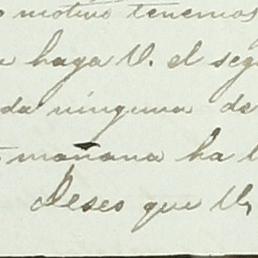 motivo tenemos
haga V. el seg
da ninguna de
mañana ha l
Deseo que V,